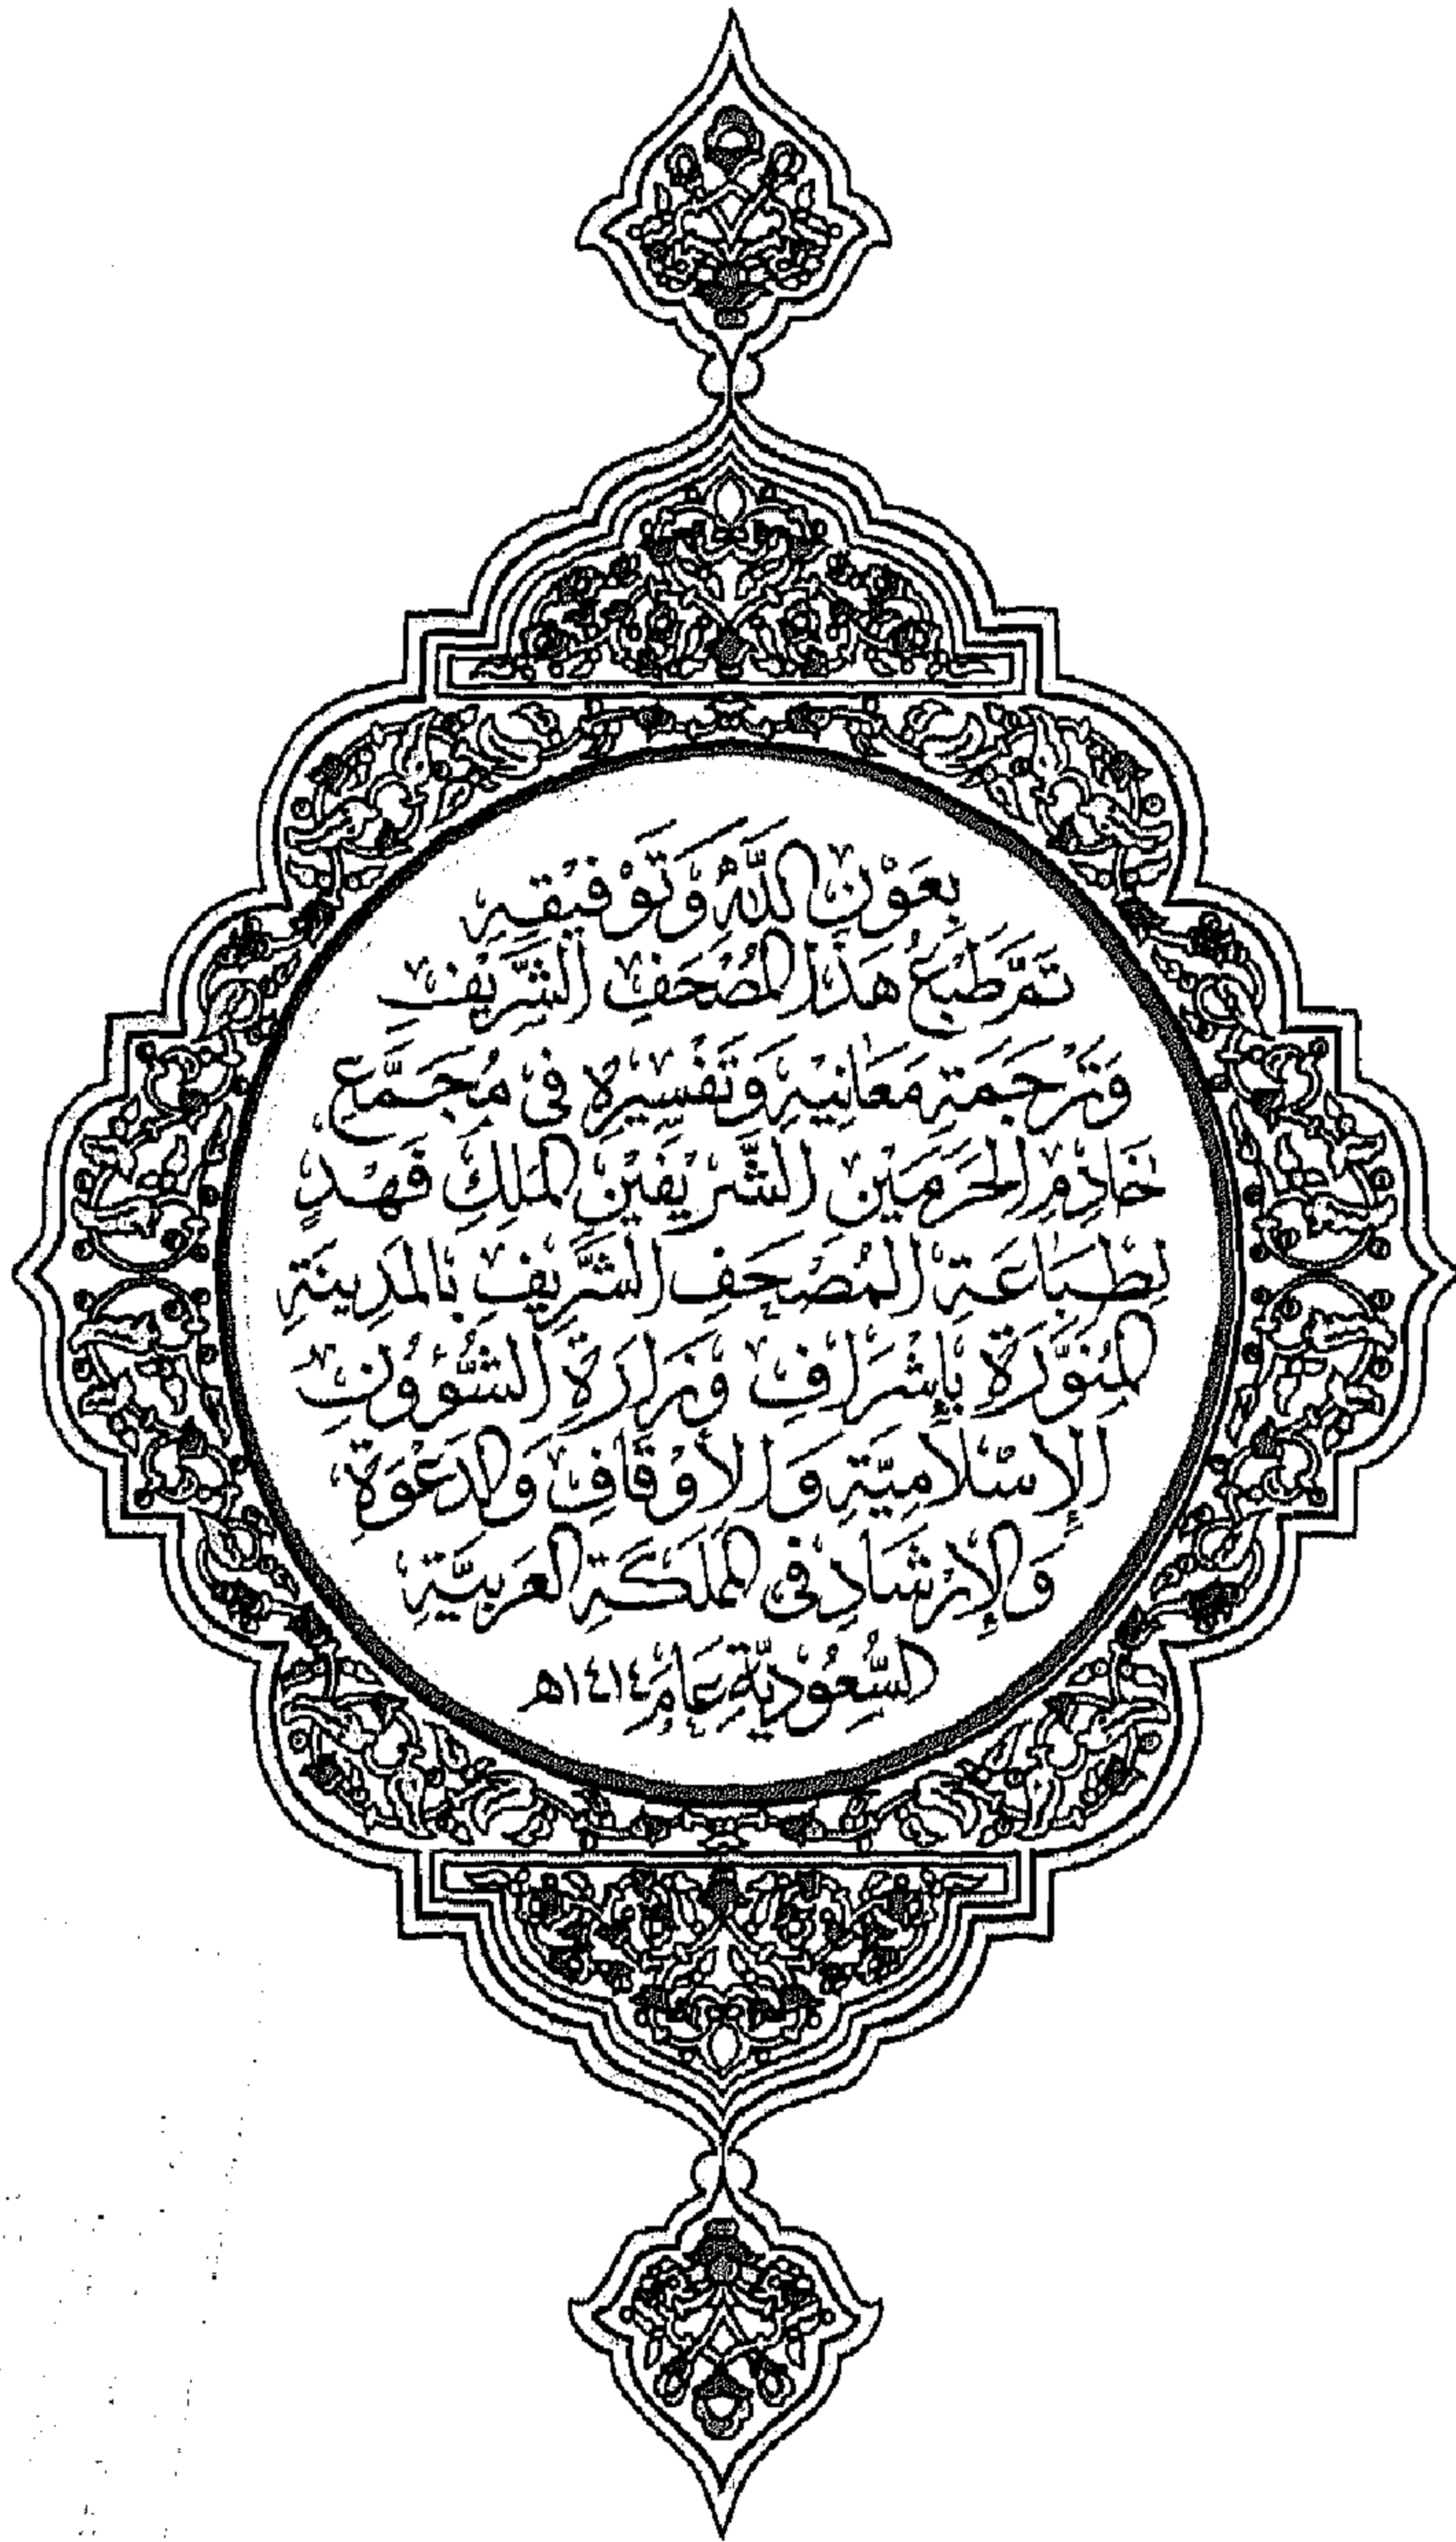 بِعَوْنِ اللَّهِ وَتَوْفِيقِهِ
تَمَّ طَبْعُ هَذَا المُصْحَفِ الشَّرِيفِ
وَتَرْجَمَةِ مَعَانِيهِ وَتَفْسِيرِهِ فِي مُجَمَّعِ
خَادِمِ الحَرَمَيْنِ الشَّرِيفَيْنِ المَلِكِ فَهْدٍ
لِطِبَاعَةِ المُصْحَفِ الشَّرِيفِ بِالمَدِينَةِ
المُنَوَّرَةِ بِإِشْرَافِ وِزَارَةِ الشُّؤُونِ
الإِسْلَامِيَّةِ وَالأَوْقَافِ وَالدَعْوَةِ
وَالإِرْشَادِ فِي المَمْلَكَةِ العَرَبِيَّةِ
السُّعُودِيَّةِ عَامَ ١٤١٤هـ